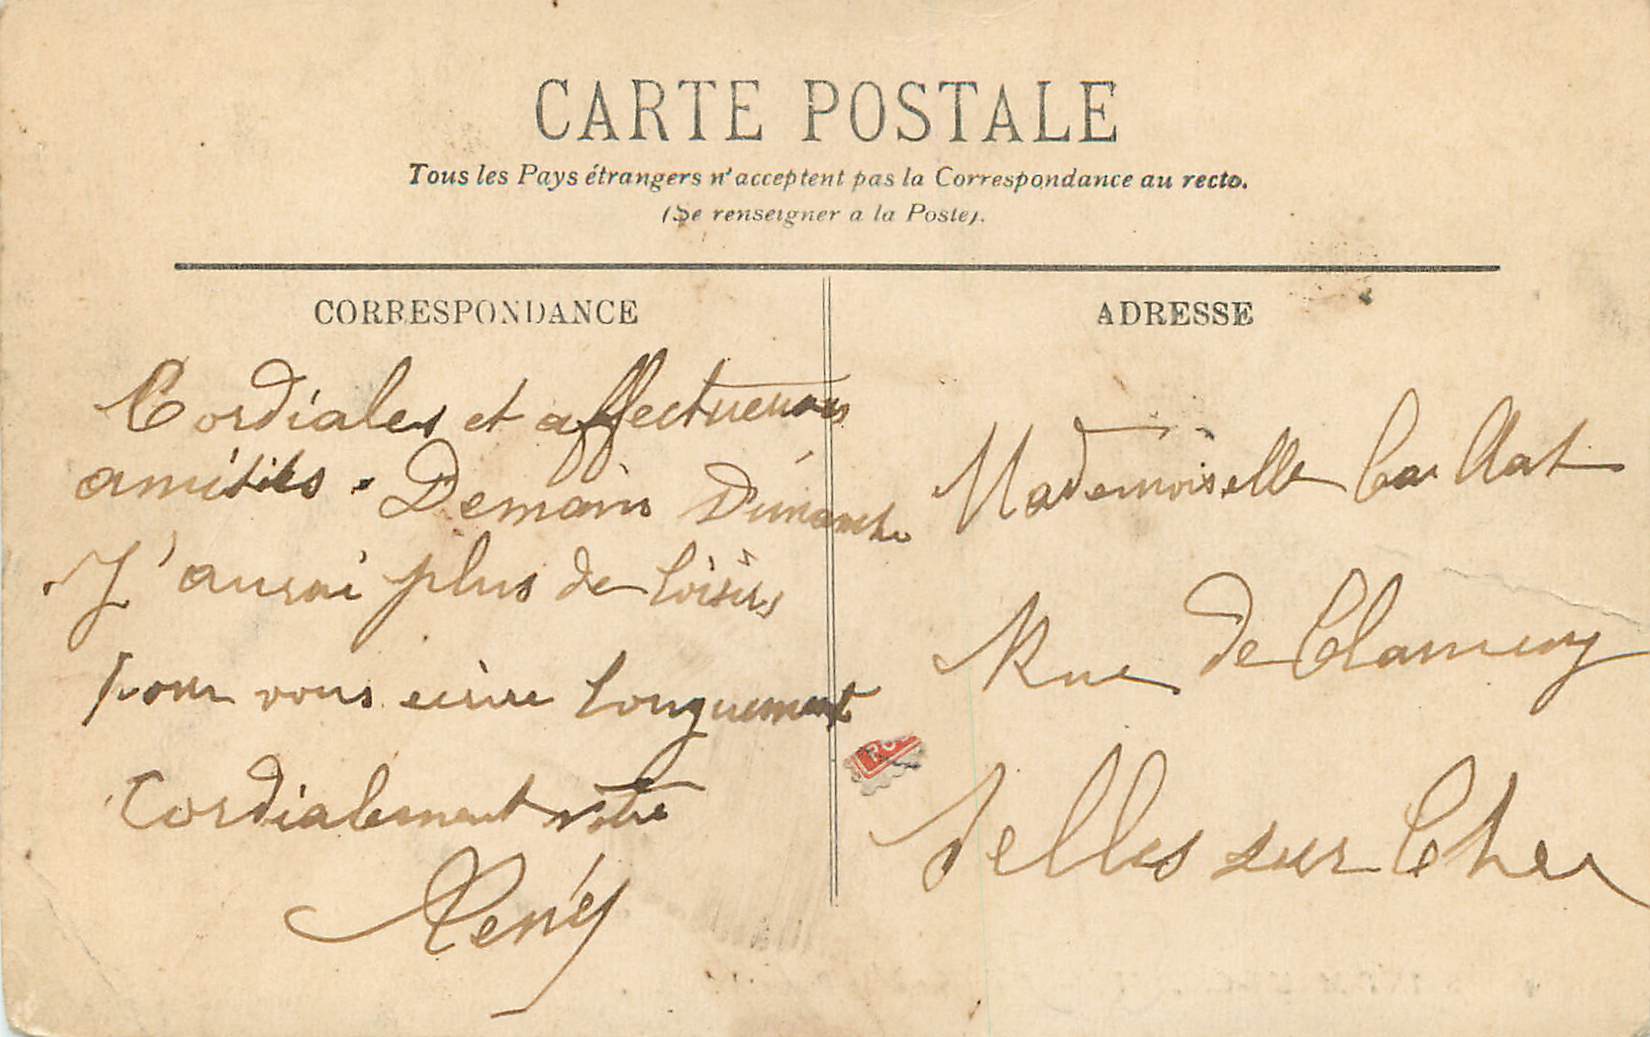 CARTE POSTALE
Tous les Pays étrangers n'acceptent pas la Correspondance au recto.
(Se renseigner a la Poste).
CORRESPONDANCE
Cordiales et affectueuses
amitiés. Demain Dimanche
J'aurai plus de loisirs
pour vous ecrire longuement
Cordialement votre
René
ADRESSE
Mademoiselle Caillat
Rue de Clamecy
Selles sur Cher